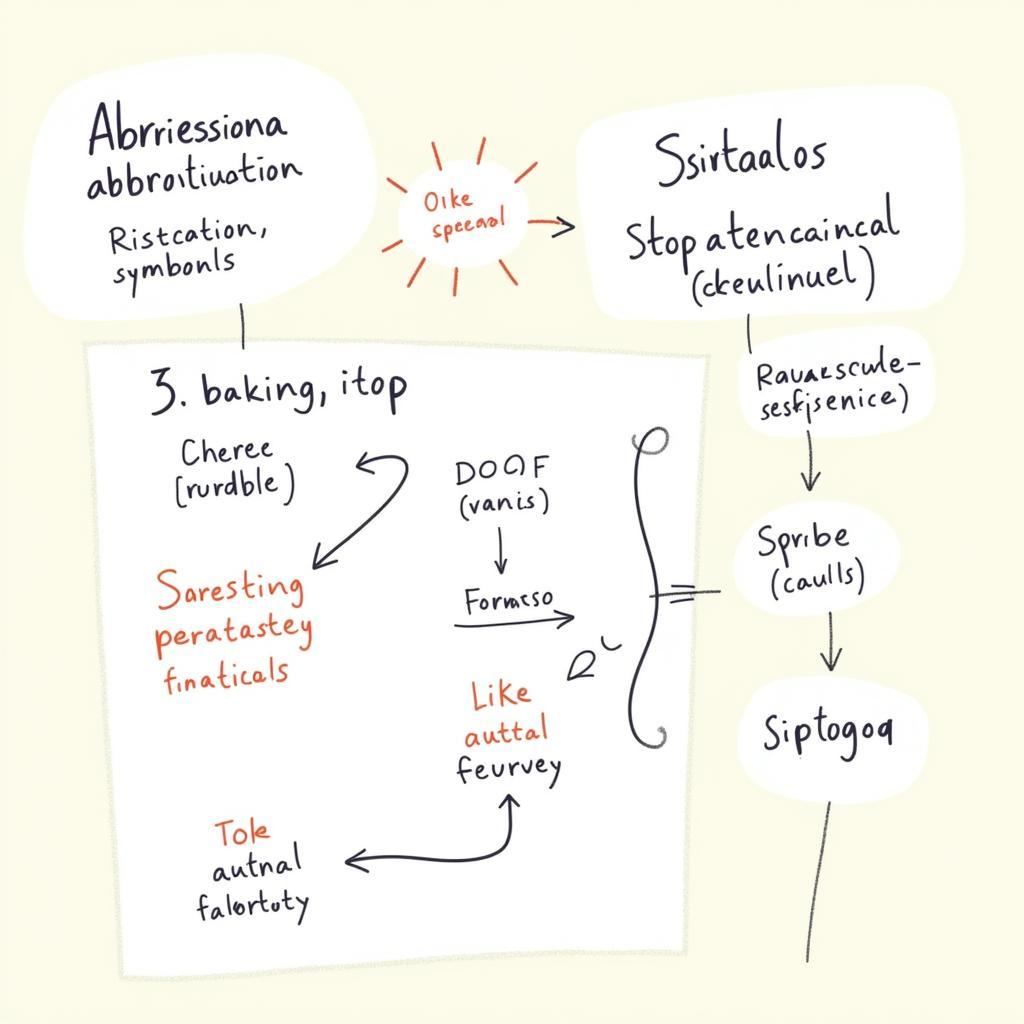 Abrriessiona
abbroitiuation
Ristcation,
symbonls
Oike
speeaal
Ssirtaalos
Stop atencaincal
(ckeulinuel)
3. baking, itop
Cheree
(rurdble)
DOOF
(vanis)
Formcso
Saresting
peratastey
finaticals
Like
auttal
feurvey
Tole
autnal
falortoty
sesfisenice)
Spribe
(caulls)
Siptogoa